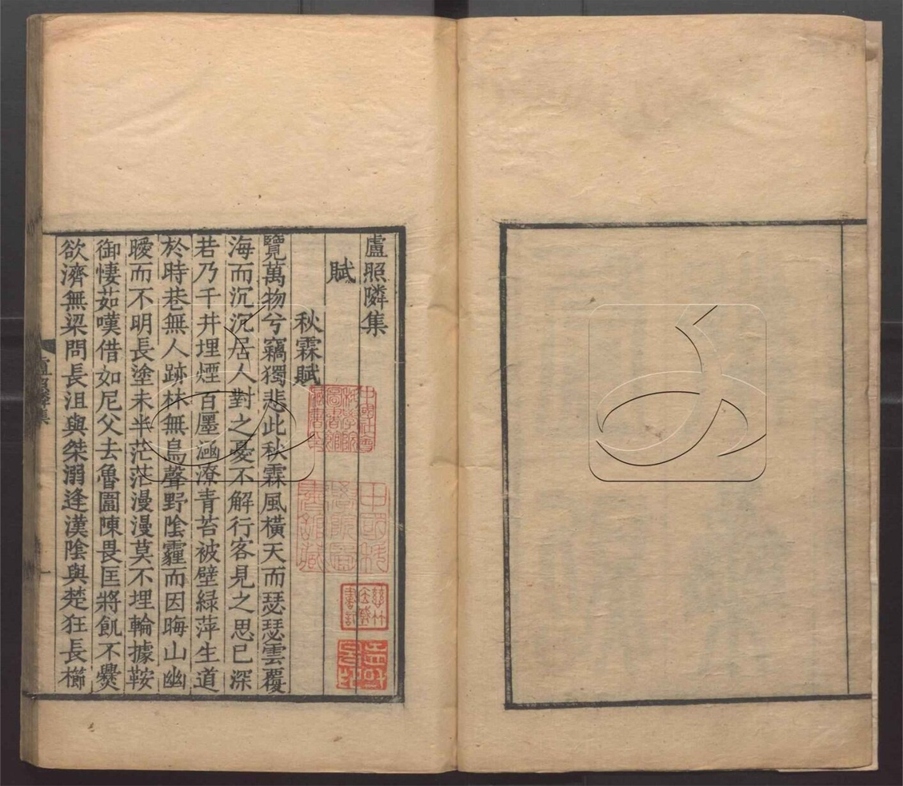 盧照隣集
賦
秋霖賦
覽萬物兮竊獨悲此秋霖風橫天而瑟瑟雲覆
海而沉沉居人對之憂不解行客見之思已深
若乃千井埋煙百廛涵潦青苔被壁綠萍生道
於時巷無人跡林無鳥聲野陰霾而因晦山幽
曖而不明長塗未半茫茫漫漫莫不埋輪據鞍
御悽茹嘆借如尼父去魯圍陳畏匡將飢不爨
欲濟無梁問長沮與桀溺逢漢陰與楚狂長櫛